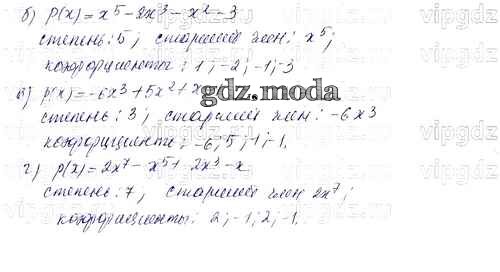 б) P(x) = x⁵ - 2x³ - x² - 3
степень: 5, старший член: x⁵;
коэффициенты: 1; -2; -1; -3
в) P(x) = -6x³ + 5x² + x
gdz.moda
степень: 3, старший член: -6x³
коэффициенты: -6; 5; 1; -1.
г) P(x) = 2x⁷ - x⁵ + 2x³ - x
степень: 7, старший член 2x⁷;
коэффициенты: 2; -1; 2; -1.